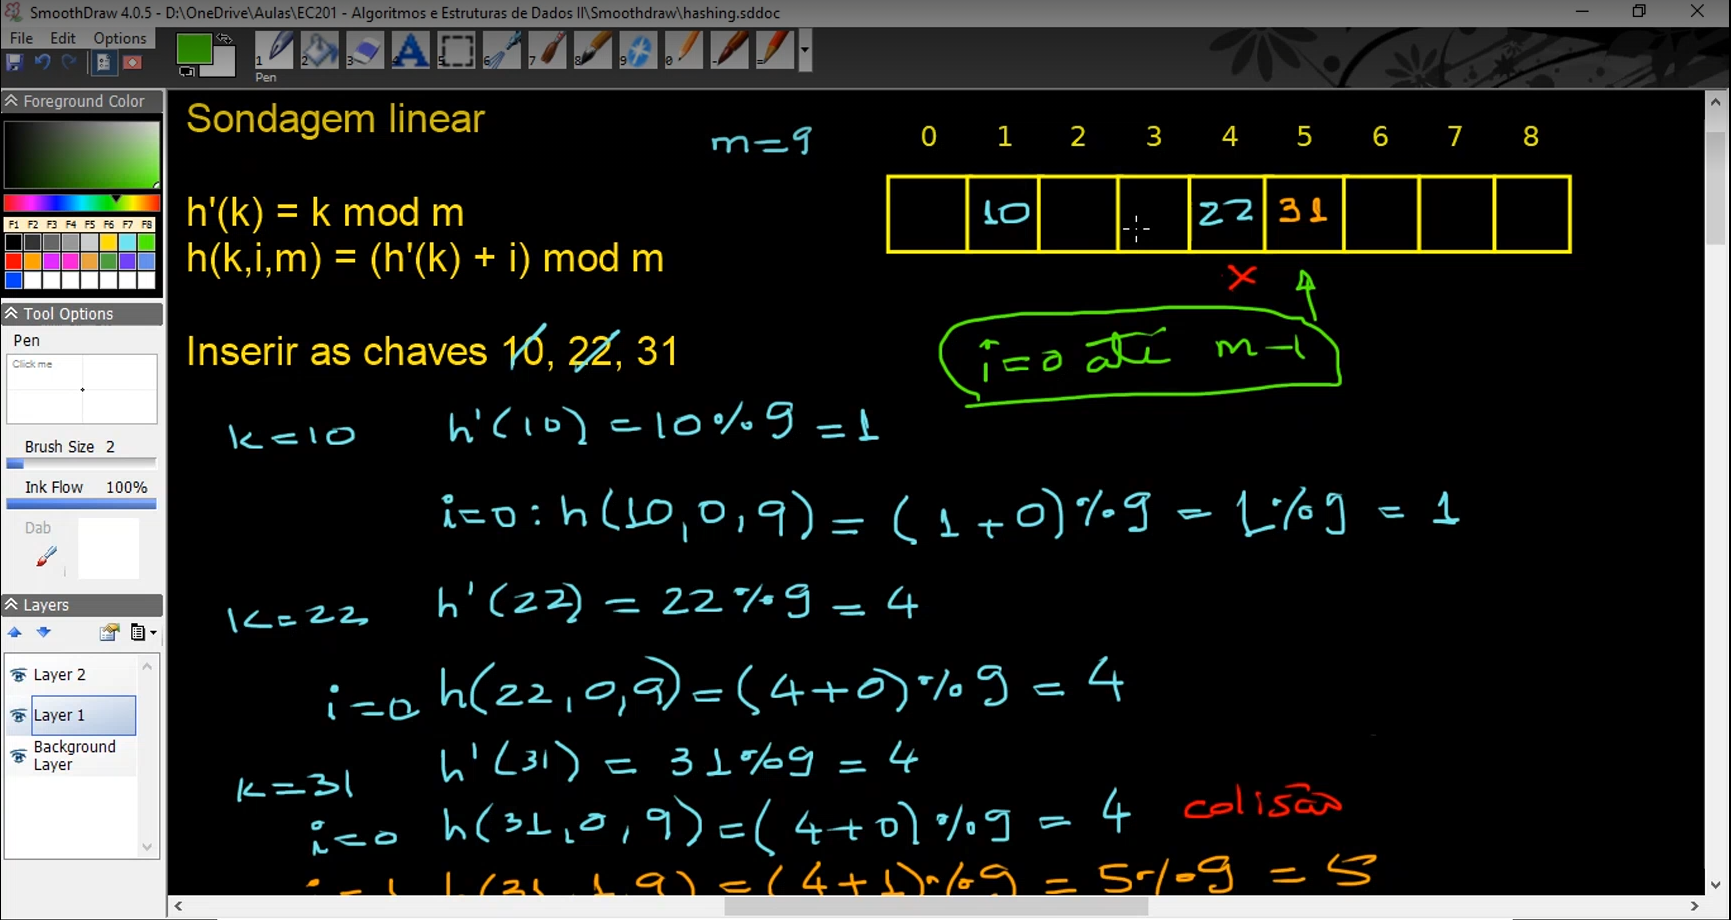 SmoothDraw 4.0.5 - D:\OneDrive\Aulas\EC201 - Algoritmos e Estruturas de Dados II\Smoothdraw\hashing.sddoc
File Edit Options
1 2 3 4 5 6 7 8 9 0 - - =
Pen
Foreground Color
F1 F2 F3 F4 F5 F6 F7 F8
Tool Options
Pen
Click me
Brush Size 2
Ink Flow 100%
Dab
Layers
Layer 2
Layer 1
Background
Layer
Sondagem linear
m=9
0 1 2 3 4 5 6 7 8
h'(k) = k mod m
10 22 31
h(k,i,m) = (h'(k) + i) mod m
x
Inserir as chaves 10, 22, 31
i=0 até m-1
k=10 h'(10) = 10%9 = 1
i=0: h(10,0,9) = (1+0)%9 = 1%9 = 1
k=22 h'(22) = 22%9 = 4
i=0 h(22,0,9)=(4+0)%9 = 4
k=31 h'(31) = 31%9 = 4
i=0 h(31,0,9)=(4+0)%9 = 4 colisão
i=1 h(31,1,9) = (4+1)%9 = 5%9 = 5